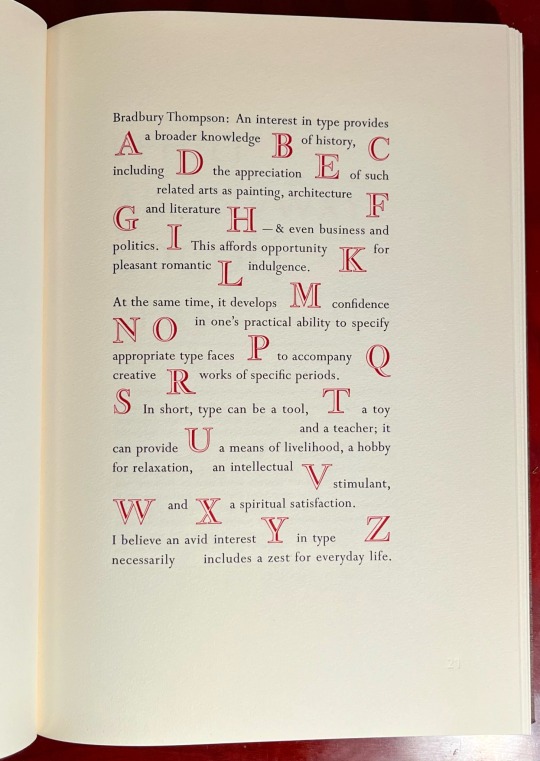 Bradbury Thompson: An interest in type provides
A a broader knowledge B of history, C
including D the appreciation E of such
related arts as painting, architecture F
G and literature H — & even business and
politics. I This affords opportunity K for
pleasant romantic L indulgence.
At the same time, it develops M confidence
N O in one's practical ability to specify
appropriate type faces P to accompany Q
creative R works of specific periods.
S In short, type can be a tool, T a toy
and a teacher; it
can provide U a means of livelihood, a hobby
for relaxation, an intellectual V
stimulant,
W and X a spiritual satisfaction.
I believe an avid interest Y in type Z
necessarily includes a zest for everyday life.